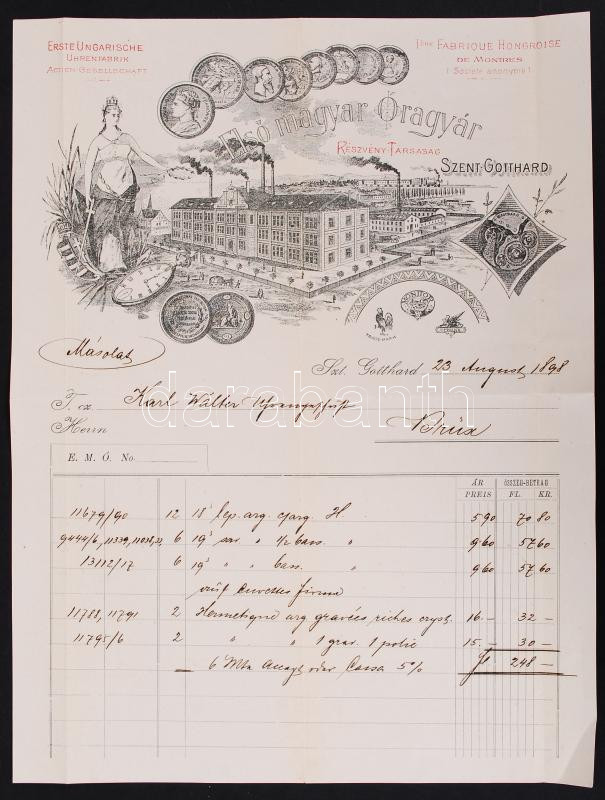 ERSTE UNGARISCHE
UHRENFABRIK
ACTIEN-GESELLSCHAFT
1ÈRE FABRIQUE HONGROISE
DE MONTRES
(Société anonyme)
Első magyar Óragyár
RÉSZVÉNY-TÁRSASÁG
SZENT-GOTTHARD
Másolat
Szt. Gotthard 23 August 1898
T. cz. Karl Walter Uhrengeschäft
Herrn Brüx
E. M. Ó. No.
ÁR ÖSSZEG-BETRAG
PREIS FL. KR.
11679/90 12 18''' lep. arg. cyarg. H. 5 90 70 80
9444/6, 11339, 11038, 6 19''' sav. " 1/2 bass. " 9 60 57 60
13112/17 6 19''' " " bass. " 9 60 57 60
auf Cuvettes firma
11788, 11791 2 Hermetique arg gravées riches cryst. 16.— 32 —
11795/6 2 " " 1 grav. 1 polie 15.— 30 —
6 Mte Accept oder Cassa 5% fl 248 —
darabanth